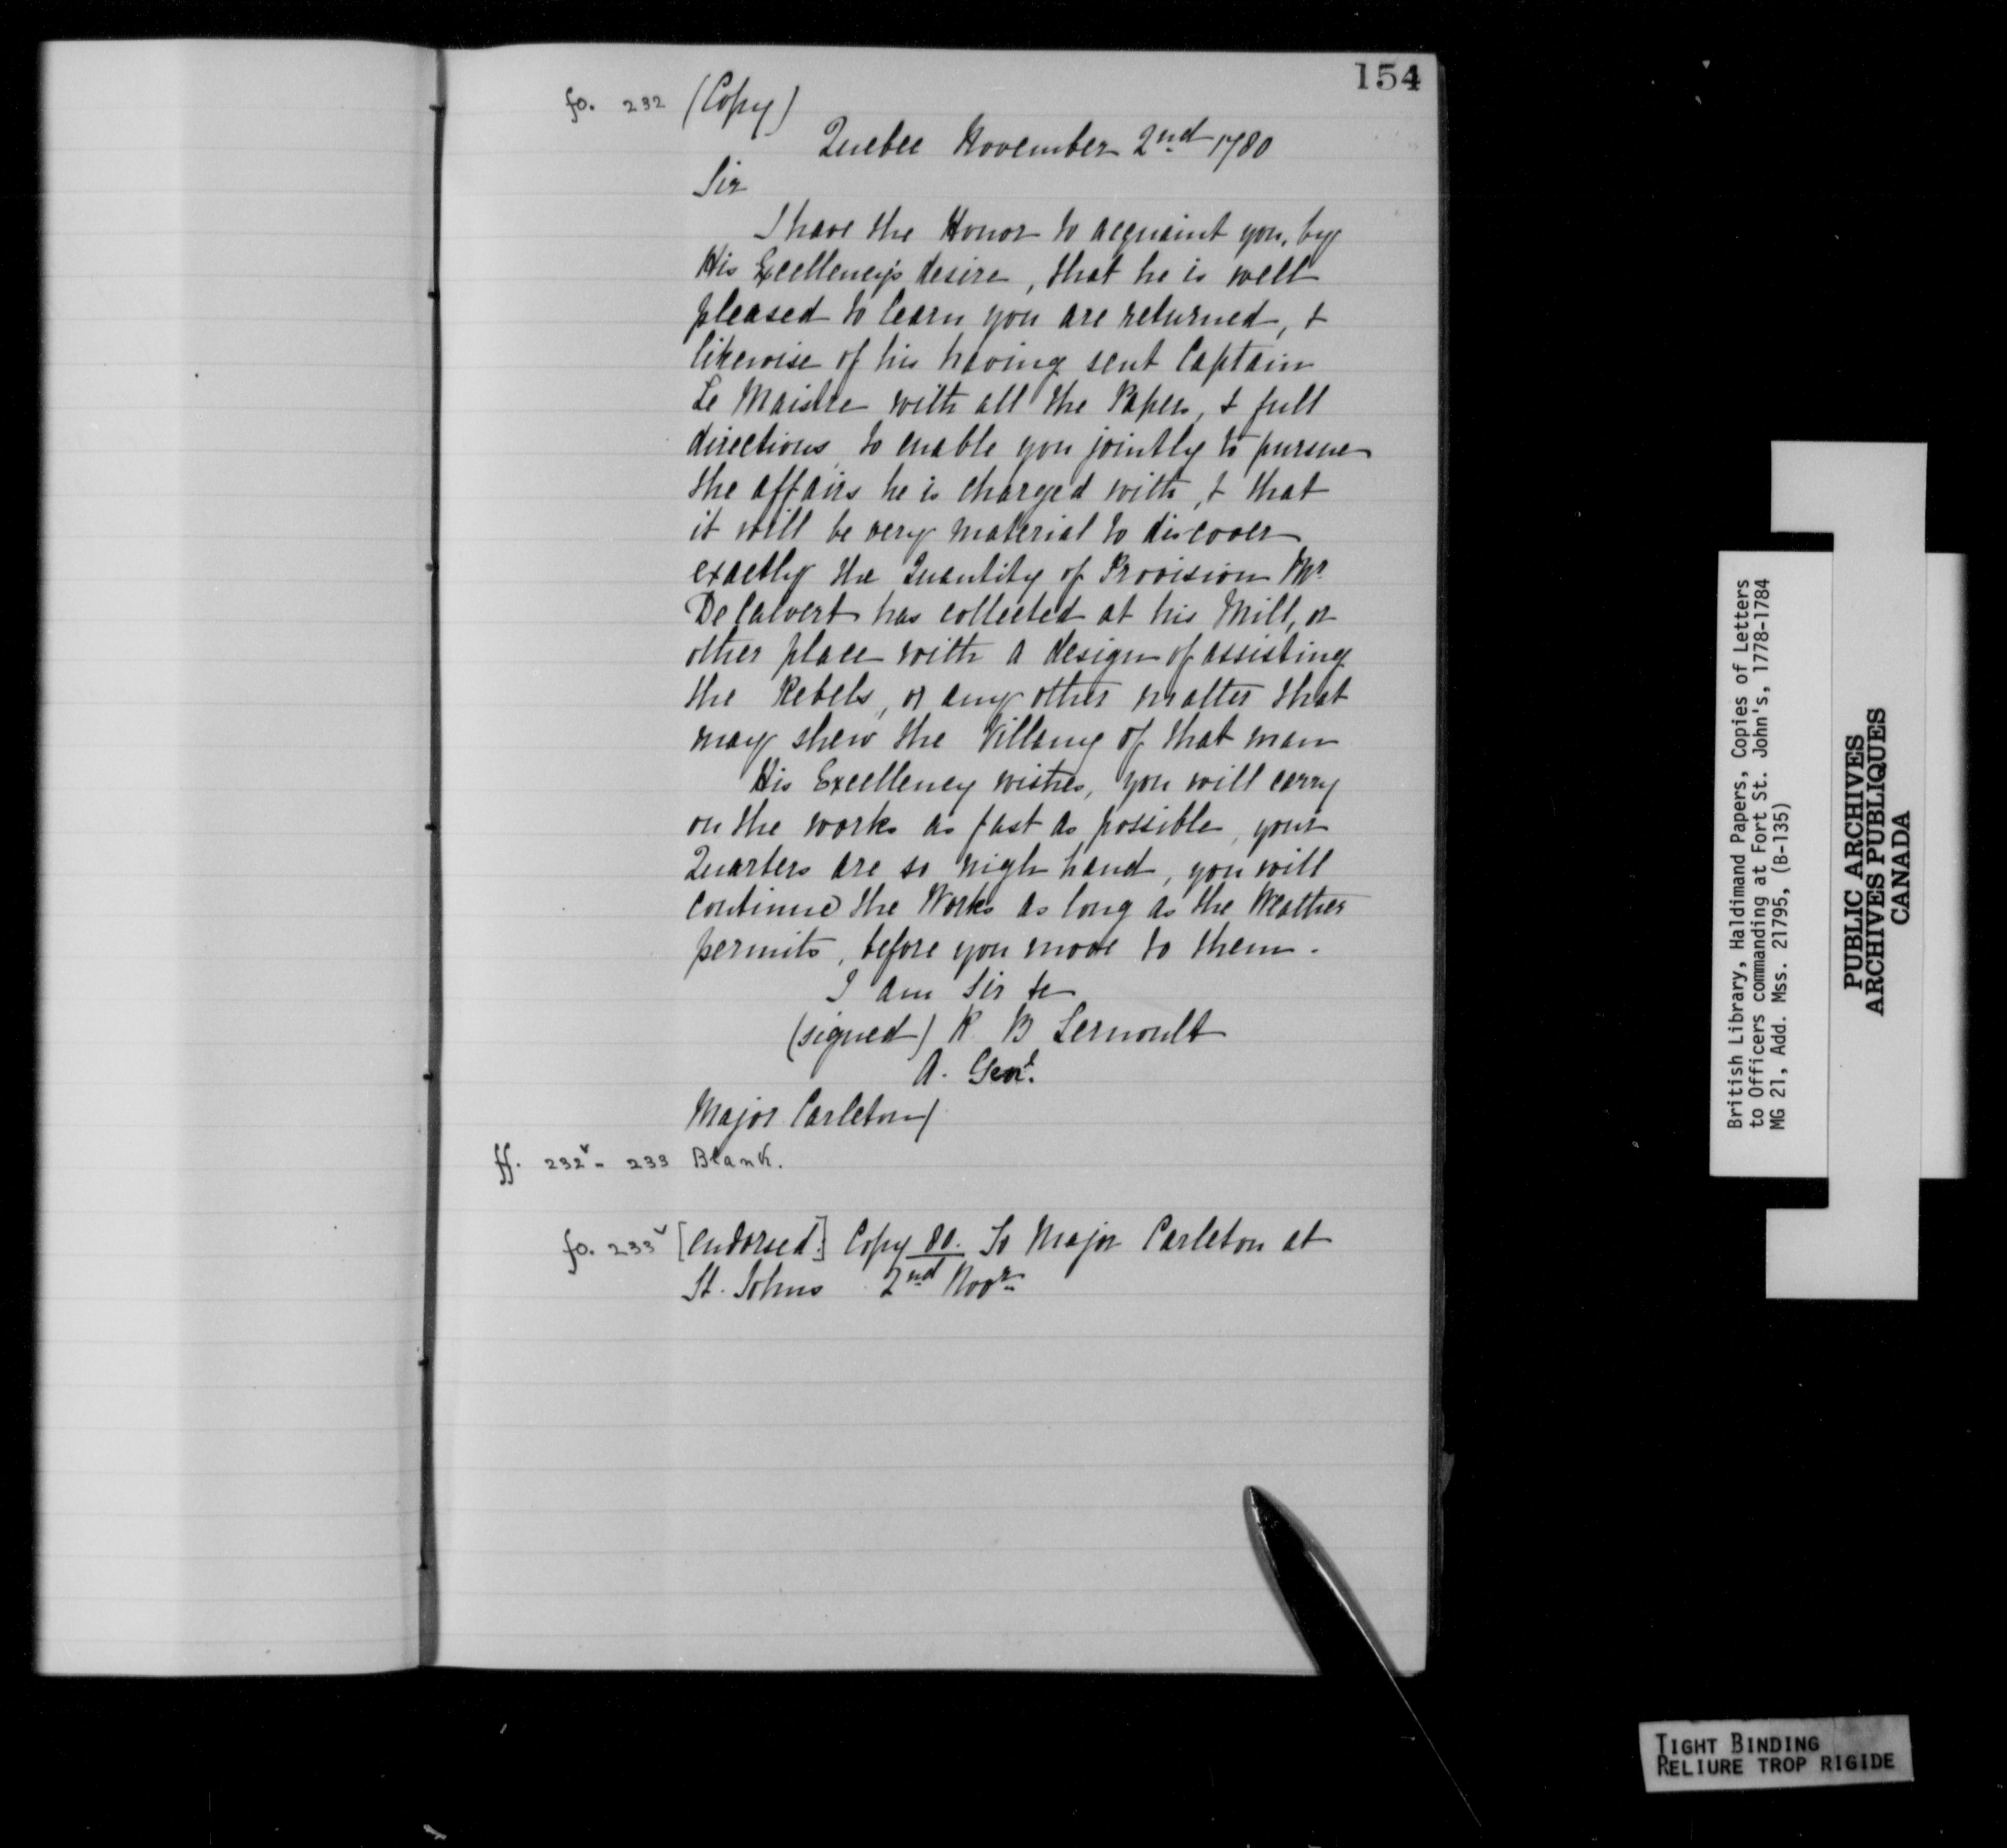 154
fo. 232 (Copy)
Quebec November 2nd 1780
Sir
I have the Honor to acquaint you, by
His Excellency's desire, that he is well
pleased to learn you are returned, &
likewise of his having sent Captain
Le Maistre with all the Papers, & full
directions, to enable you jointly to pursue
the affairs he is charged with, & that
it will be very material to discover
exactly the Quantity of Provision Mr
De Calvert has collected at his Mill, or
other place with a design of assisting
the Rebels, or any other matter that
may shew the Villany of that man
His Excellency wishes, you will carry
on the works as fast as possible, your
Quarters are so nigh hand, you will
continue the Works as long as the Weather
permits, before you move to them.
I am Sir &c
(signed) R B Lernoult
A. Genl.
Major Carleton/
ff. 232v - 233 Blank.
fo. 233v [endorsed.] Copy 80. To Major Carleton at
St. Johns 2nd Novr
British Library, Haldimand Papers, Copies of Letters
to Officers commanding at Fort St. John's, 1778-1784
MG 21, Add. Mss. 21795, (B-135)
PUBLIC ARCHIVES
ARCHIVES PUBLIQUES
CANADA
TIGHT BINDING
RELIURE TROP RIGIDE